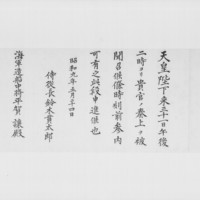 天皇陛下来三十一日午後
二時ヨリ貴官ノ奏上ヲ被
聞召候條時刻前参内
可有之此段申進候也
昭和九年五月二十四日
侍従長鈴木貫太郎
海軍造船中将平賀譲殿